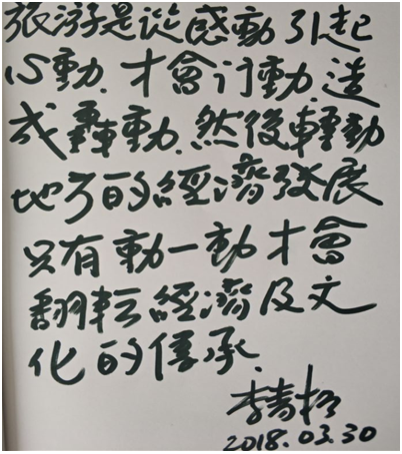 旅游是從感動引起
心動.才會行動.造
成轟動.然後轉動
地方的經濟發展
只有動一動才會
翻転經濟及文
化的傳承.
李青松
2018.03.30